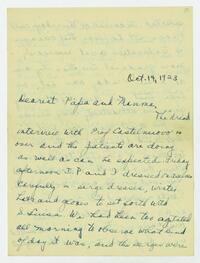 Oct. 19, 1923
Dearest Papa and Nonna,
The dread
interview with Prof Castelnuovo is
over and the patients are doing
as well as can be expected. Friday
afternoon J. P. and I dressed ourselves
carefully in serge dresses, winter
hats and gloves to set forth with
S. Luisa. We had been too agitated
all morning to observe what kind
of day it was, and the serges were